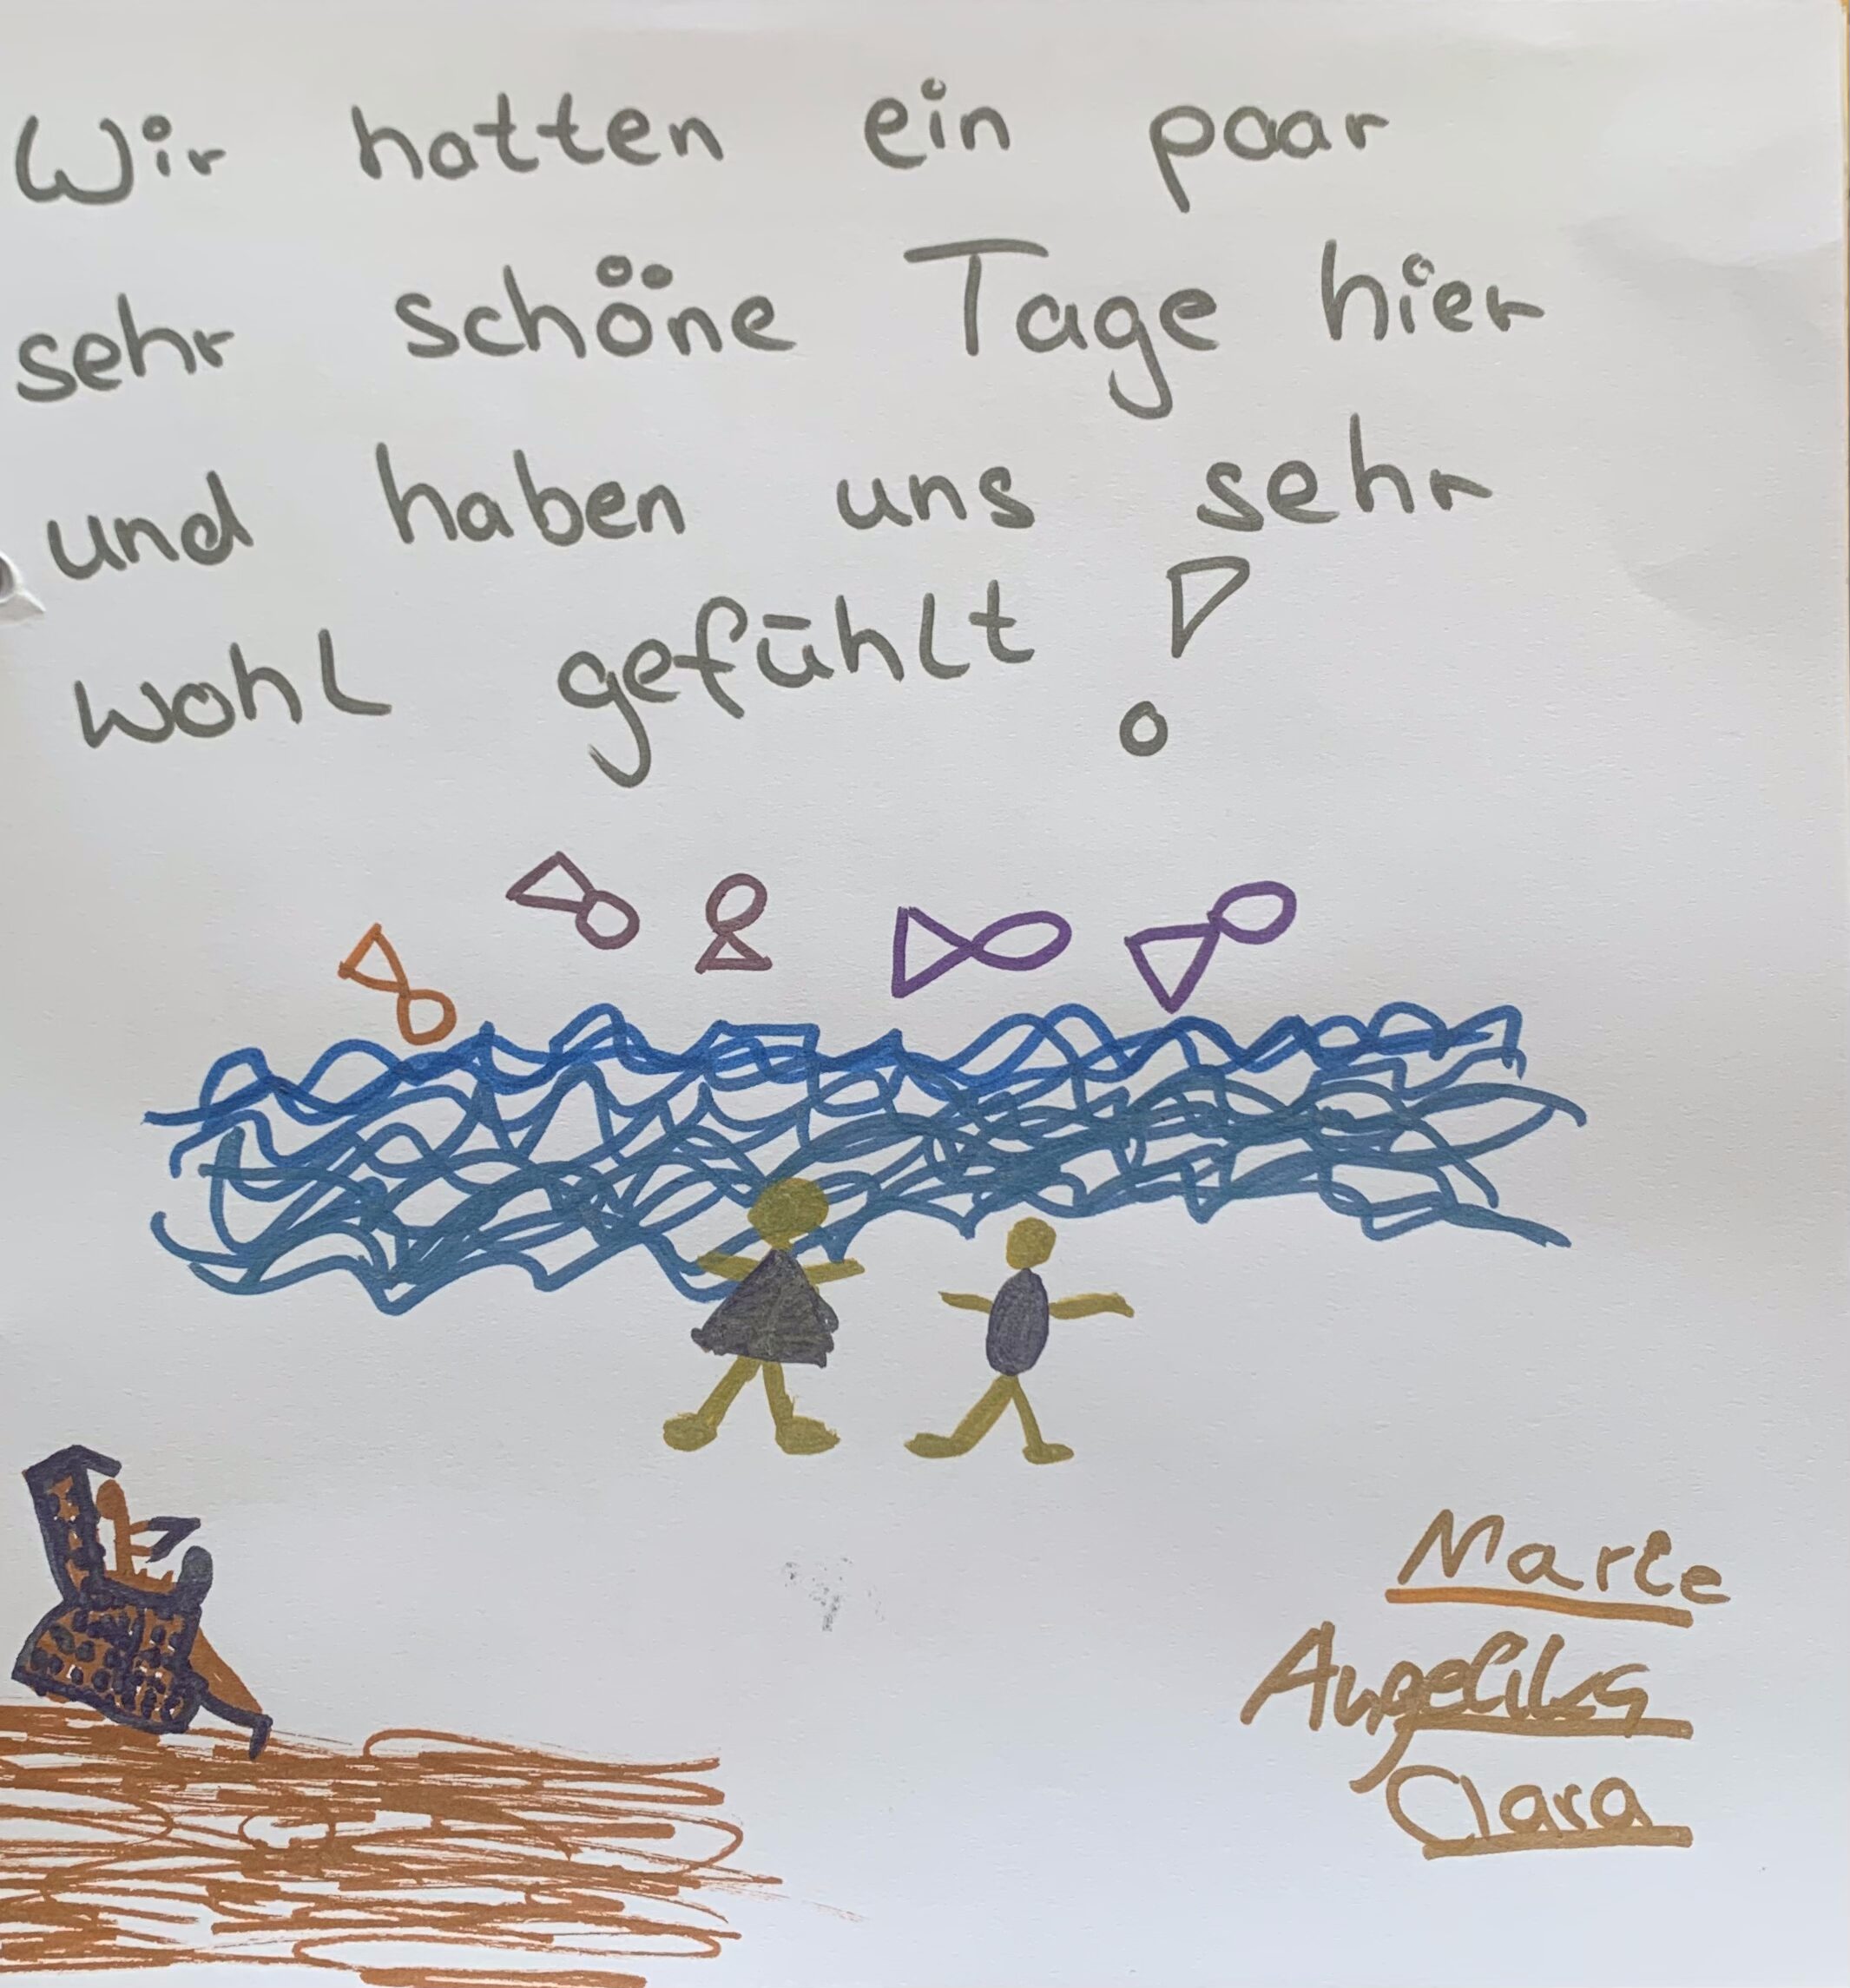 Wir hatten ein paar
sehr schöne Tage hier
und haben uns sehr
wohl gefühlt !
Marie
Angelika
Clara